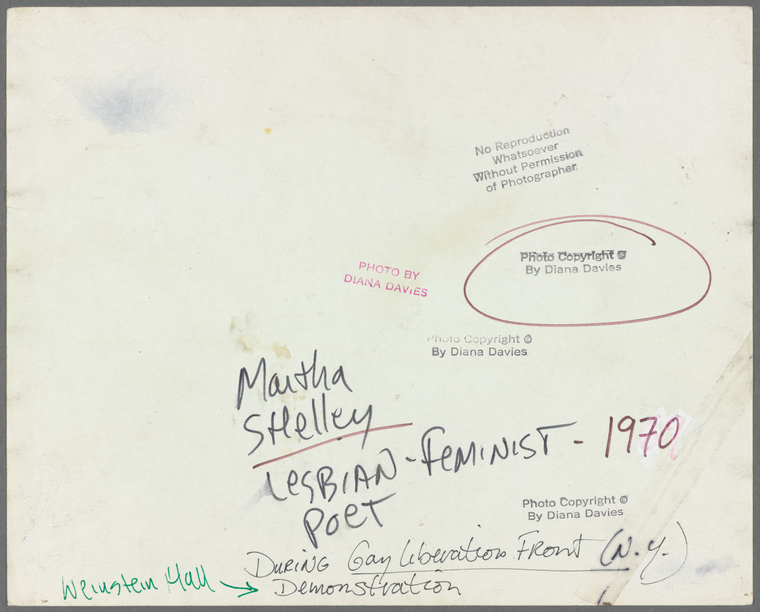 No Reproduction
Whatsoever
Without Permission
of Photographer
Photo Copyright ©
By Diana Davies
PHOTO BY
DIANA DAVIES
Photo Copyright ©
By Diana Davies
Martha
SHelley
LesBIAN-FeMINIST - 1970
Poet
Photo Copyright ©
By Diana Davies
DURING Gay Liberation FRONT (N.Y.)
Weinstein Hall → Demonstration